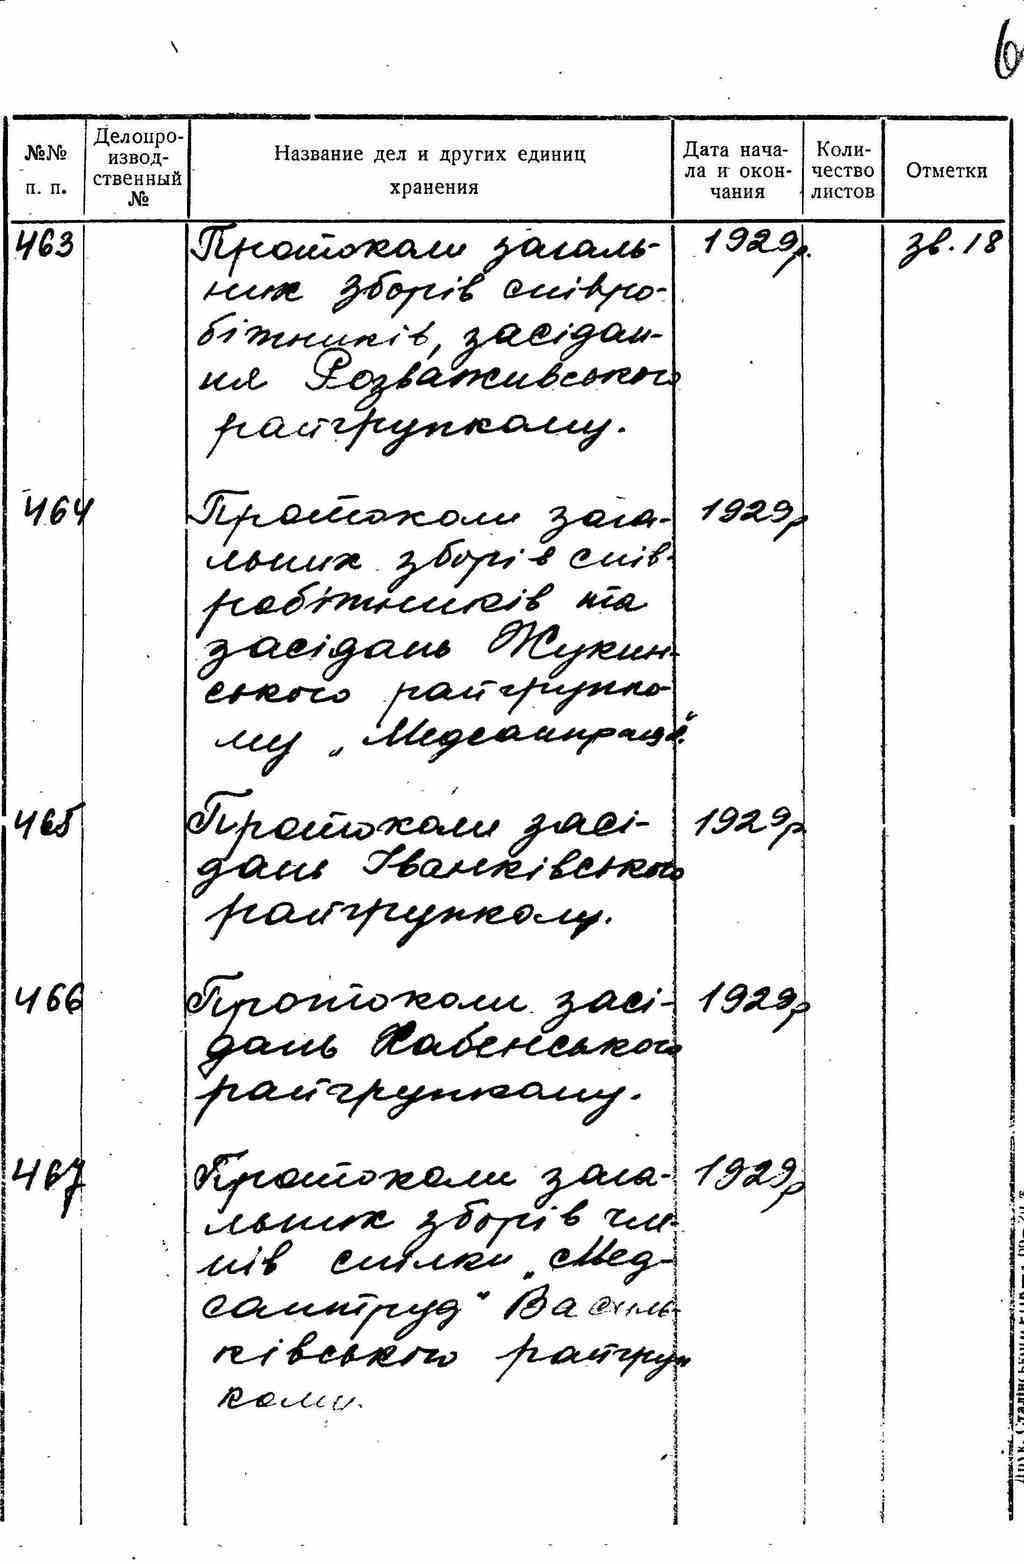 6
№№ п. п.
Делопро-
извод-
ственный
№
Название дел и других единиц
хранения
Дата нача-
ла и окон-
чания
Коли-
чество
листов
Отметки
463 Протоколи загаль- 1929р. зв. 18
них зборів співро-
бітників, засідан-
ня Розважівського
райгрупкому.
464 Протоколи зага- 1929р
льних зборів спів-
робітників та
засідань Жукин-
ського райгрупко-
му „Медсанпраця".
465 Протоколи засі- 1929р
дань Іванківського
райгрупкому.
466 Протоколи засі- 1929р
дань Хабенського
райгрупкому.
467 Протоколи зага- 1929р
льних зборів чле-
нів спілки „Мед-
сантруд" Василь-
ківського райгруп
кому.